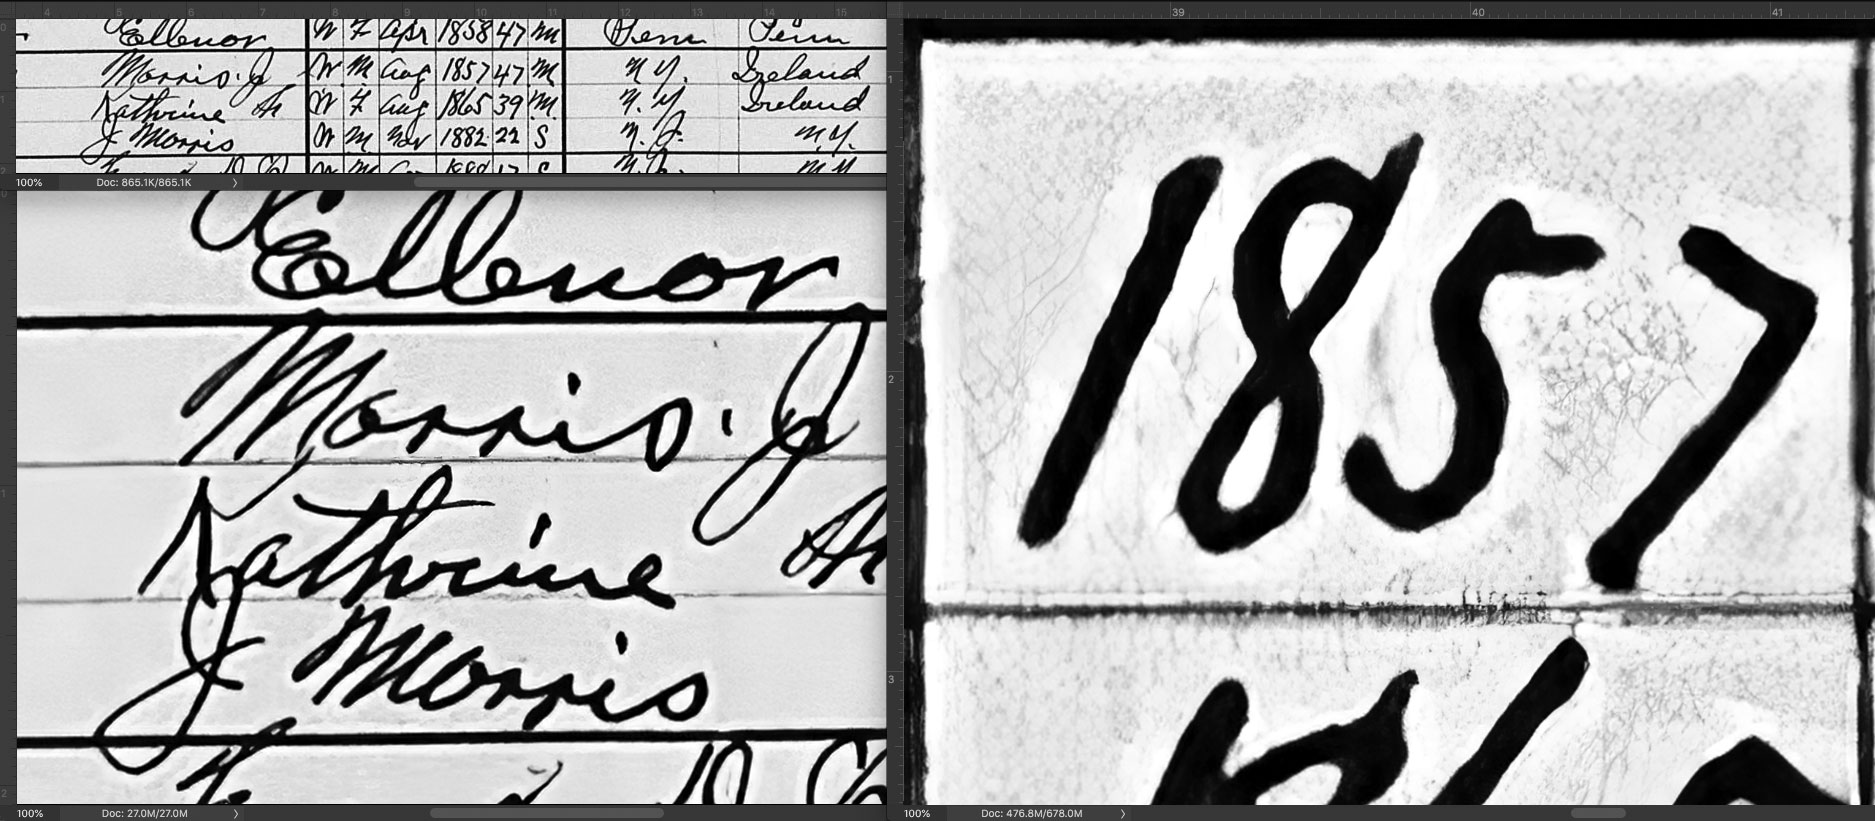 4 5 6 7 8 9 10 11 12 13 14 15
Ellenor W F Apr 1858 47 M Penn Penn
Morris. J W M Aug 1857 47 M N.Y. Ireland
Kathrine M W F Aug 1865 39 M N.Y. Ireland
J Morris W M Nov 1882 22 S N.J. N.Y.
100% Doc: 865.1K/865.1K
Ellenor
Morris. J
Kathrine M
J Morris
100% Doc: 27.0M/27.0M
39 40 41
1857
100% Doc: 476.8M/678.0M